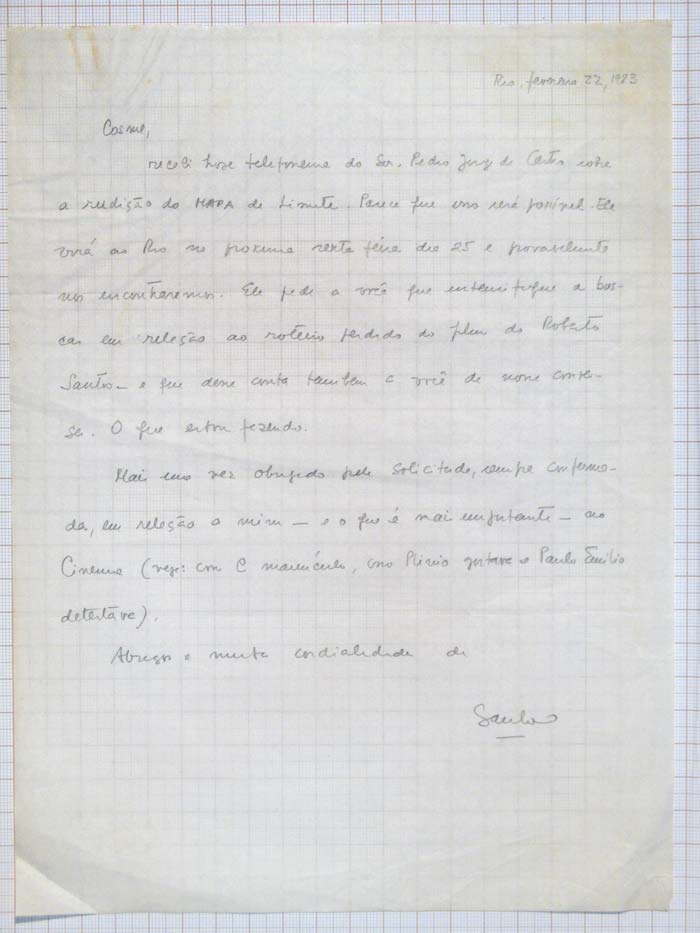 Rio, fevereiro 22, 1983
Cosme,
recebi hoje telefonema do Sr. Pedro Jorge de Castro sobre
a reedição do MAPA de Limite. Parece que isso será possível. Ele
virá ao Rio na próxima sexta feira dia 25 e provavelmente
nos encontraremos. Ele pede a você que intensifique a bus-
ca em relação ao roteiro perdido do filme do Roberto
Santos — e que desse conta também a você de nossa conver-
sa. O que estou fazendo.
Mais uma vez obrigado pela solicitude, sempre confirma-
da, em relação a mim — e o que é mais importante — ao
Cinema (veja: com C maiúsculo, como Plinio gostava e Paulo Emilio
detestava).
Abraços e muita cordialidade de
Saulo